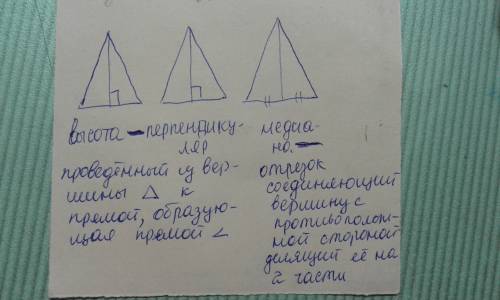 высота – перпендику-
ляр
проведённый из вер-
шины △ к
прямой, образую-
щая прямой ∠
медиа-
на. –
отрезок
соединяющий
вершину с
противополож-
ной стороной
делящий её на
2 части